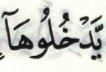 يَّدْخُلُوْهَاۤ